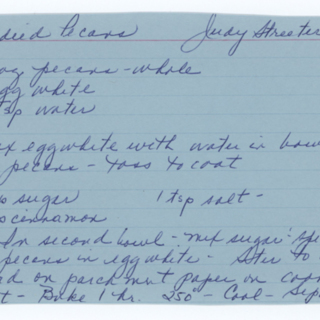 died Pecans Judy Streeter
oz pecans - whole
gg white
tsp water
x eggwhite with water in bow
pecans - toss to coat
sugar 1 tsp salt -
cinnamon
In second bowl - mix sugar
pecans in egg white - Stir to
d on parchmut paper on
t - Bake 1 hr. 250° - Cool -